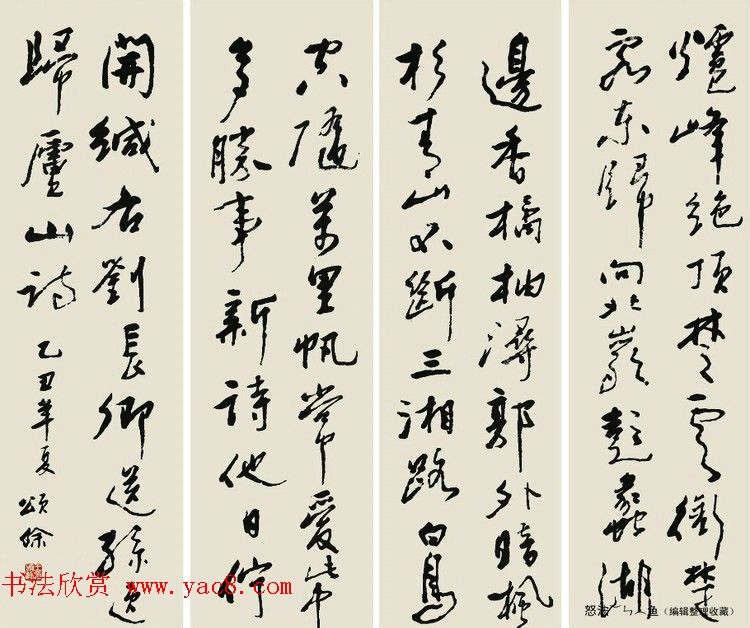 爐峰絕頂楚雲銜楚
客東歸向此巖彭蠡湖
邊香橘柚潯郭外暗楓
杉青山不斷三湘路白鳥
空隨萬里帆常愛此中
多勝事新詩他日佇
開緘右劉長卿送孫逸
歸廬山詩
乙丑年夏 頌餘
书法欣赏 www.yac8.com
鱼（编辑整理收藏）